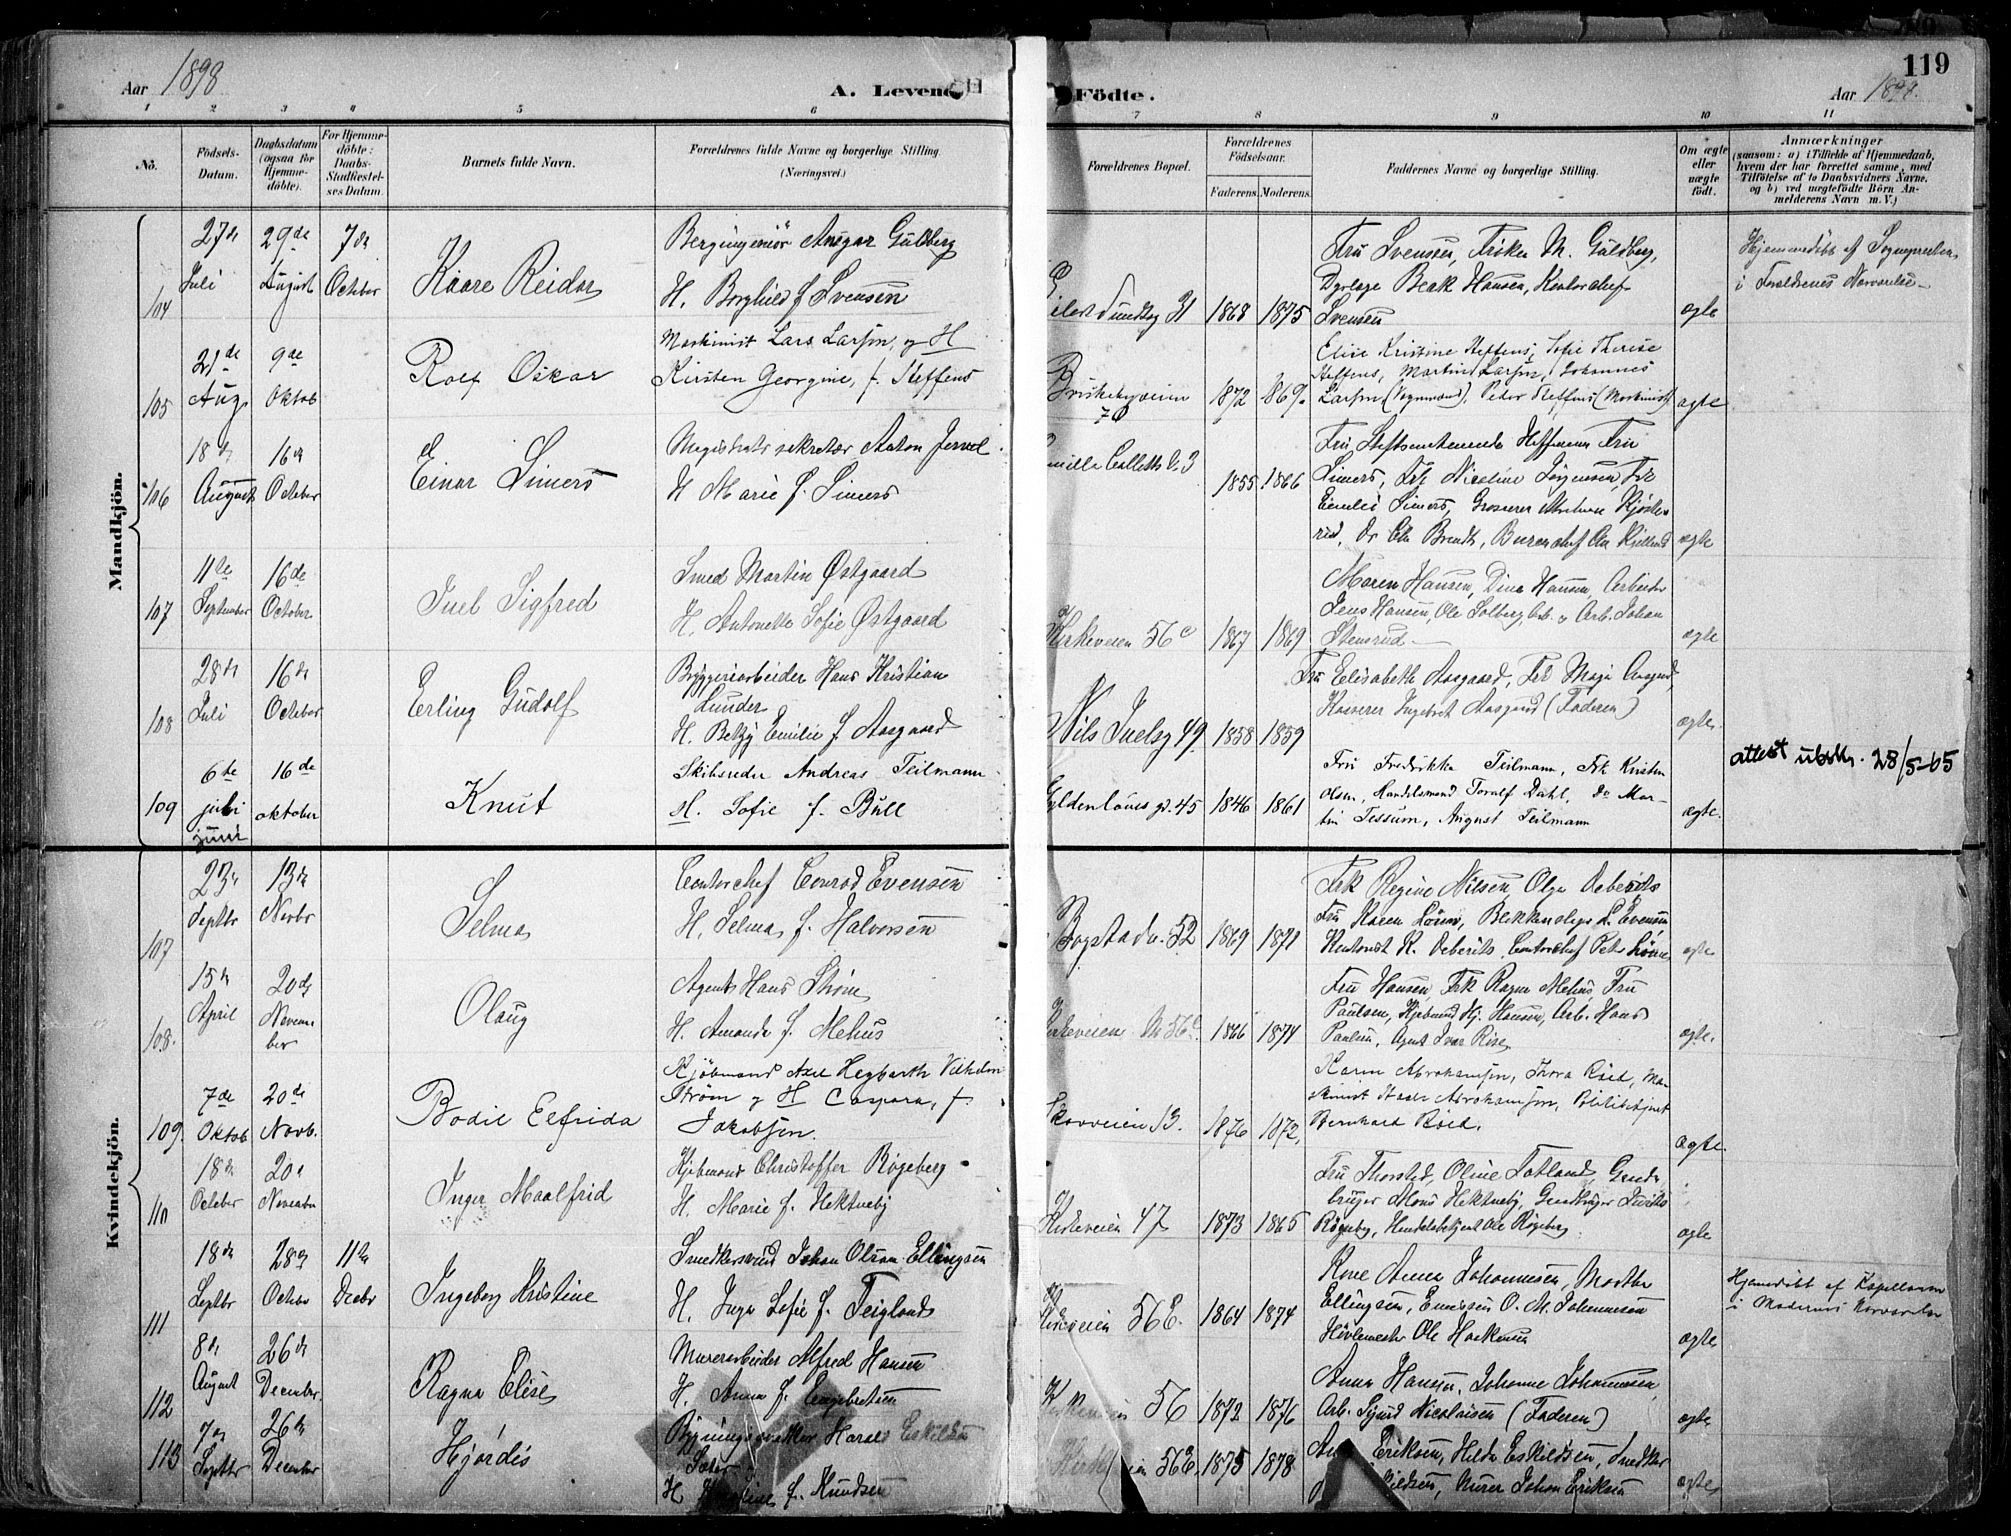 Aar 1898
A. Levende
Födte.
119
Aar 1898.
1 2 3 4 5 6 7 8 9 10 11
No.
Födsels-
Datum.
Daabsdatum
(ogsaa for
Hjemme-
döbte).
For Hjemme-
döbte:
Daabs-
Stadfæstel-
ses Datum.
Barnets fulde Navn.
Forældrenes fulde Navne og borgerlige Stilling.
(Næringsvei.)
Forældrenes Bopæl.
Forældrenes
Födselsaar.
Faderens. Moderens.
Faddernes Navne og borgerlige Stilling.
Om ægte
eller
uægte
födt.
Anmærkninger
(saasom: a) i Tilfælde af Hjemmedaab,
hvem der har forrettet samme, med
Tilföielse af to Daabsvidners Navne,
og b) ved uægtefödte Börn An-
melderens Navn m. V.)
Mandkjön.
104
27de
Juli
29de
August
7de
October
Kaare Reidar
Bergingeniør Ansgar Guldberg
H. Borghild f. Svensen
31
1868 1875
Fru Svensen, Frøken M. Guldberg,
Dyrlæge Beak Hansen, Kontorchef
Svensen
ægte
Hjemmedøbt af Sognepresten
i Forældrenes Nærværelse
105
21de
Aug
9de
Oktob
Rolf Oskar
Maskinist Lars Larsen, og H
Kirsten Georgine, f. Steffens
Briskebyveien
1872 1869.
Elise Kristine Steffens, Sofie Therese
Steffens, Martin Larsen, Johannes
Larsen (Vognmand), Peter Steffens (Maskinist)
ægte
106
18de
August
16de
October
Einar Simers
Magistratssekretær Anton Jervel
H Marie f. Simers
Camilla Colletts v. 3
1855 1866
Simers, Frk Nicoline Jørgensen, Frk
Emilie Simers, Grosserer
ægte
107
11te
September
16de
October
Juel Sigfred
Smed Martin Østgaard
H. Antonette Sofie Østgaard
Kirkeveien 56c
1867 1869
Maren Hansen, Dina Hansen, Arbeider
Jens Hansen, Ole Solberg, Arb. og Arb. Johan
Stensrud
ægte
108
28de
Juli
16de
October
Erling Gudolf
Bryggeriarbeider Hans Kristian
Lunder
H. Betzy Emilie f. Aasgaard
Nils Juelsg 49.
1858 1859
Fru Elisabeth Aasgaard, Frk Maja Aasgaard,
Kasserer Ingebret Aasgaard (Faderen)
ægte.
109
6te
juli
juni
16de
oktober
Knut
Skibsreder Andreas Teilmann
H. Sofie f. Bull
Gyldenløves gt. 45
1846 1861
Fru Fredrikke Teilmann, Frk Kirsten
Olsen, Handelsmand Toralf Dahl, Dr Mar-
tin Tessum, August Teilmann
ægte.
attest utstk. 28/5-65
Kvindekjön.
107
23de
Septbr
13de
Novbr
Selma
Contorchef Conrad Evensen
H. Selma f. Halvorsen
Bogstadv. 52
1869 1871
Frk Regine Nilsen Olga Deberitz
Fru Karen Lönne, Blikkenslager L. Evensen
Kontorist K. Deberitz, Contorchef Peter Lönne
ægte
108.
15de
April
20de
Novem-
ber
Olaug
Agent Hans Strøm
H. Amanda f. Mehus
Kirkeveien No 56c
1866 1874
Fru Hansen, Frk Ragna Mehus Fru
Paulsen, Kjøbmand Hj. Hansen, Arb. Hans
Paulsen, Agent Ivar Rise
ægte.
109.
7de
Oktob
20de
Novb.
Bodil Elfrida
Kjøbmand Axel Hegbarth Vilhelm
Strøm og H Caspara, f.
Jakobsen.
Skovveien 13.
1876 1872,
Karen Abrahamsen, Thora Röed, Ma-
skinist Abrahamsen, Politibetjent
Bernhard Röed.
Ægte.
110
18de
October
20de
November
Inger Maalfrid
Kjøbmand Christoffer Røgeberg
H. Marie f. Hektneby
Kirkeveien 47
1873 1865
Fru Thorsted, Oline Totland, Gaard-
bruger Mons Hektneby, Gaardbruger
Røgeberg, Handelsbetjent Ole Røgeberg
ægte
111
18de
Septbr
28de
Octbr
11te
Decbr
Ingeborg Kristine
Snedkersvend Johan Olson Ellingsen
H. Inga Sofie f. Teigland
Kirkeveien 56E.
1864 1874
Kone Anna Johannesen, Marthe
Ellingsen, O. M. Johannesen
Høvlemester Ole Haakensen
ægte
Hjemdöbt af Kapellanen
i Moderens Nærværelse
112
8de
August
26de
December.
Ragna Elise
Murerarbeider Alfred Hansen
H. Anna f. Engebretsen
Kirkeveien 56
1872 1876
Anna Hansen, Johanne Johannesen
Arb. Sigurd Nicolaisen (Faderen)
ægte
113
7de
Septbr
26de
December
Hjördis
Harald Eskildsen
H f. Knudsen
Kirkeveien 56E.
1875 1878
Eriksen, Hilda Eskildsen, Snedker
Eskildsen, Murer Johan Eriksen
ægte